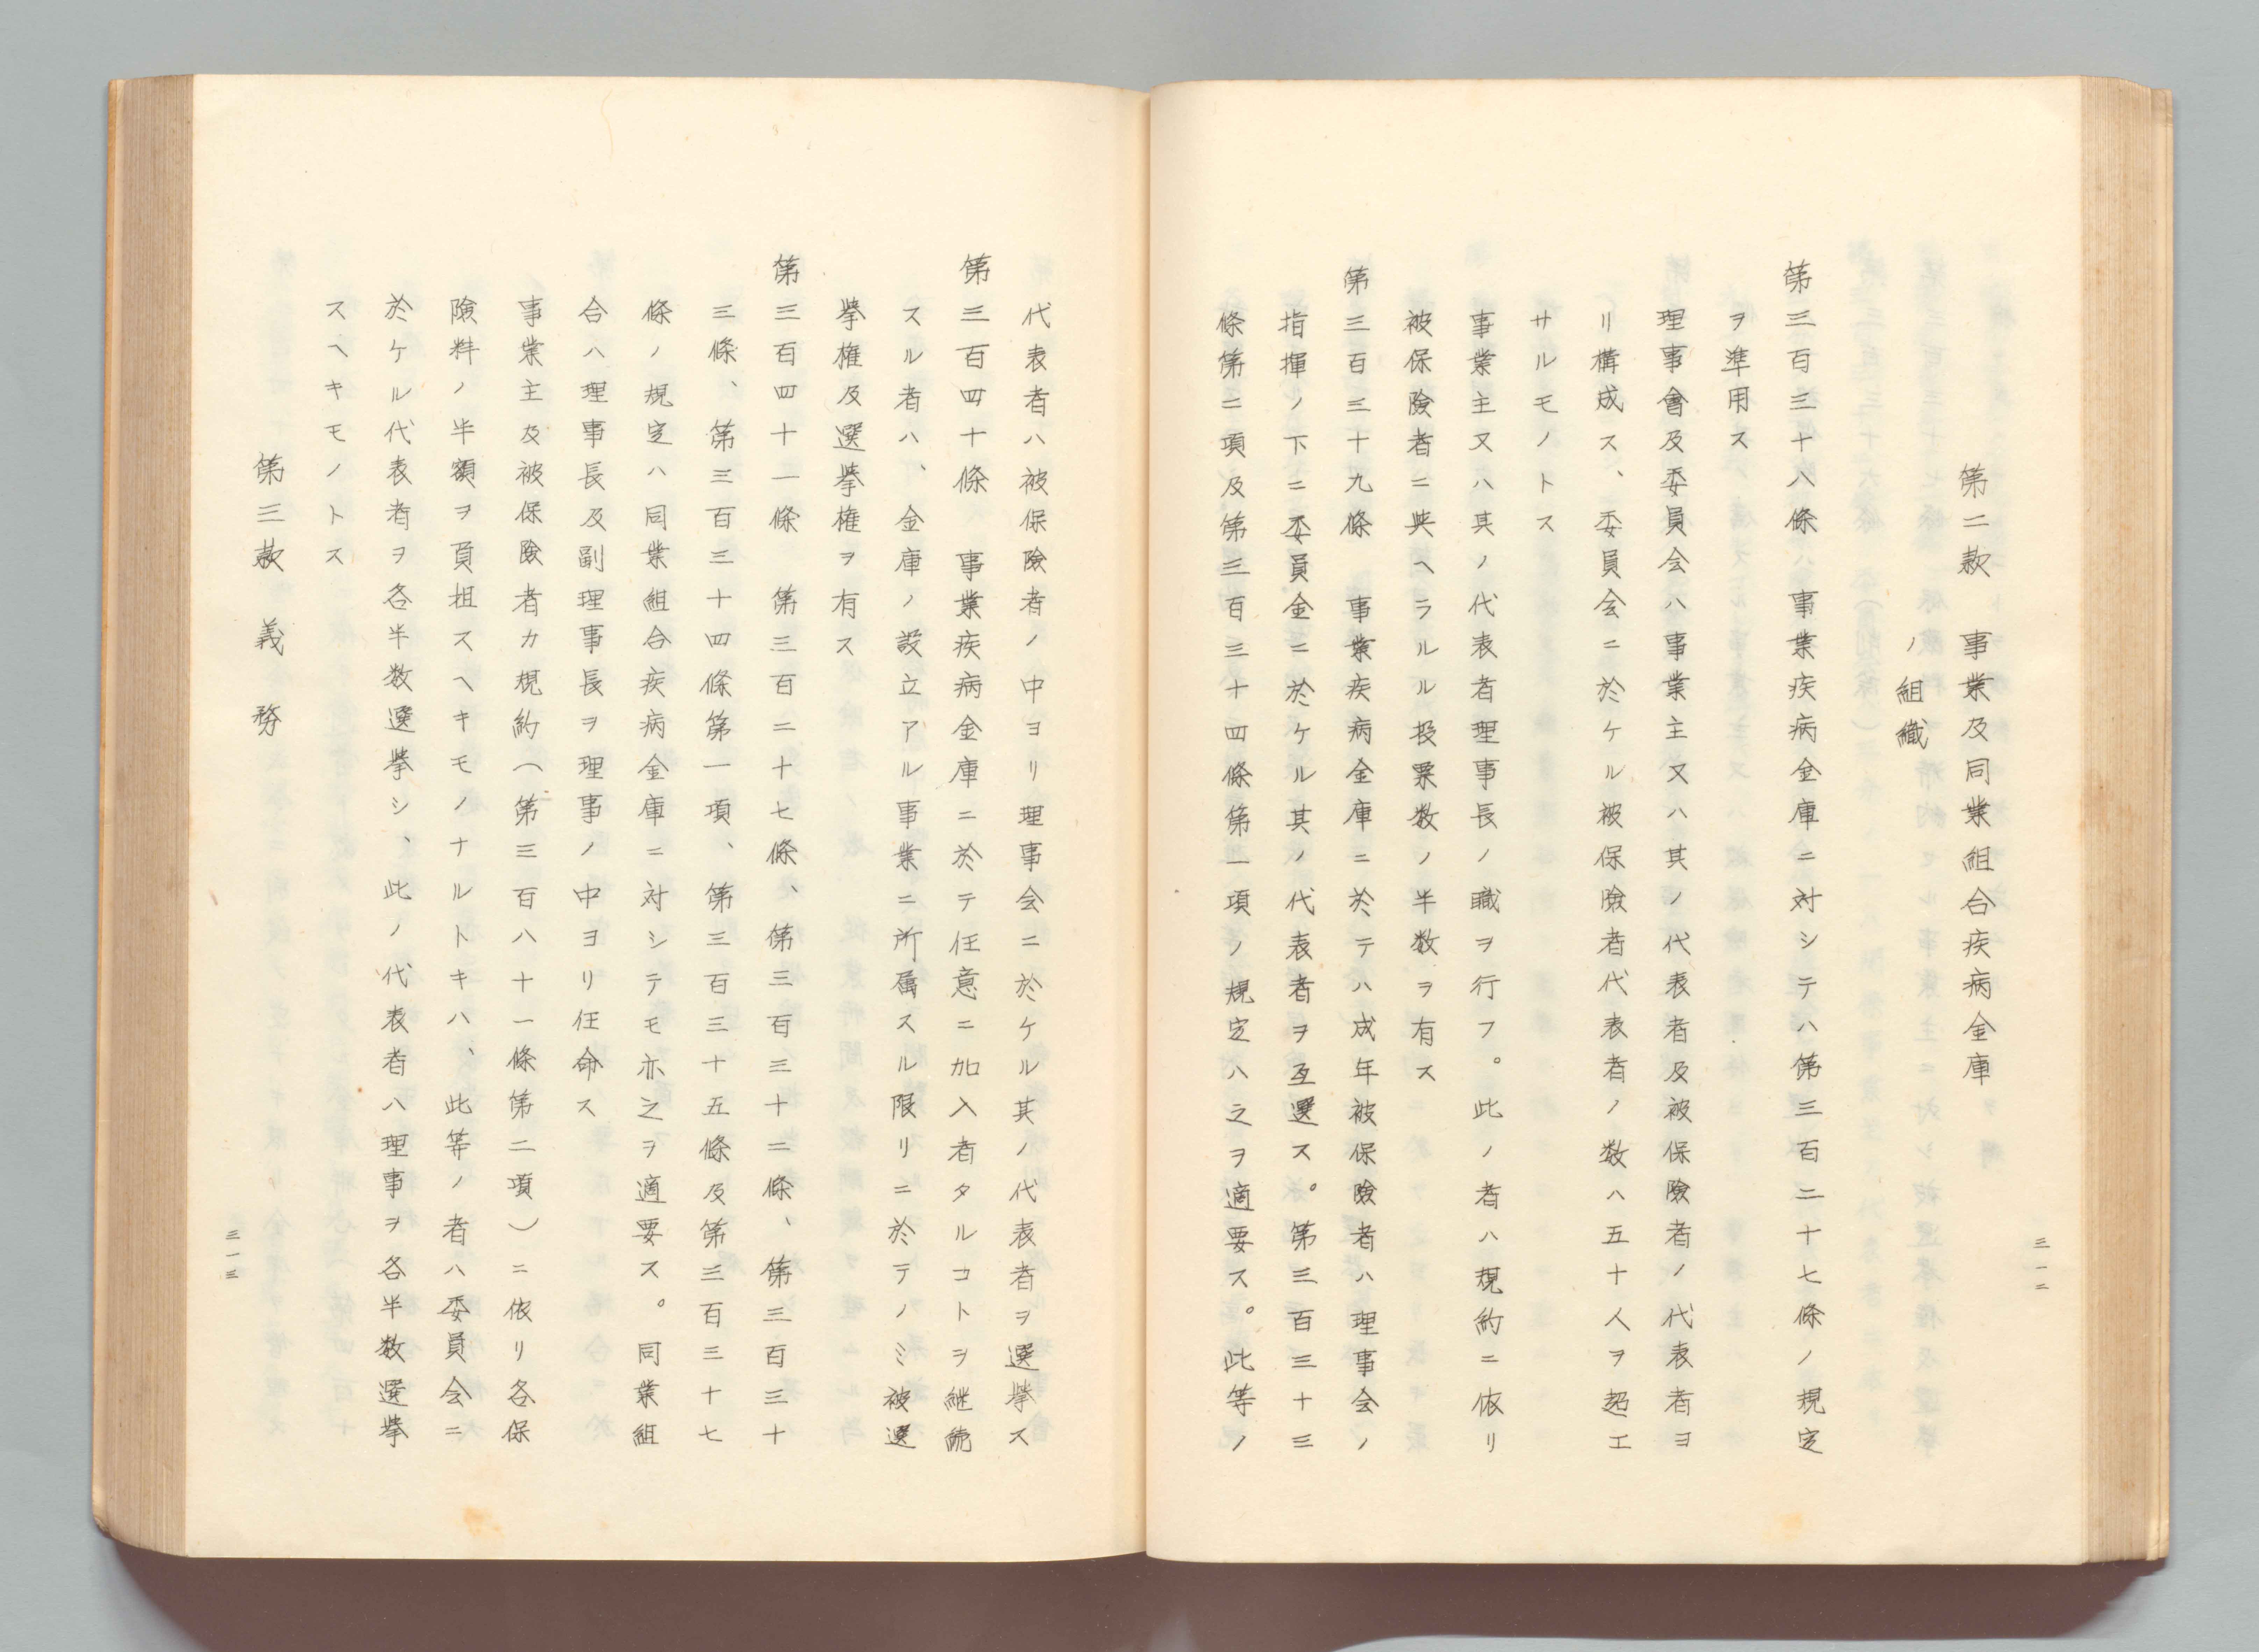 三一二
第二款　事業及同業組合疾病金庫
ノ組織
第三百三十八條　事業疾病金庫ニ対シテハ第三百二十七條ノ規定
ヲ準用ス
理事會及委員会ハ事業主又ハ其ノ代表者及被保險者ノ代表者ヨ
リ構成ス、委員会ニ於ケル被保險者代表者ノ数ハ五十人ヲ超エ
サルモノトス
事業主又ハ其ノ代表者理事長ノ職ヲ行フ。此ノ者ハ規約ニ依リ
被保險者ニ与ヘラルル投票数ノ半数ヲ有ス
第三百三十九條　事業疾病金庫ニ於テハ成年被保險者ハ理事会ノ
指揮ノ下ニ委員金ニ於ケル其ノ代表者ヲ互選ス。第三百三十三
條第二項及第三百三十四條第一項ノ規定ハ之ヲ適要ス。此等ノ
代表者ハ被保險者ノ中ヨリ理事会ニ於ケル其ノ代表者ヲ選挙ス
第三百四十條　事業疾病金庫ニ於テ任意ニ加入者タルコトヲ継続
スル者ハ、金庫ノ設立アル事業ニ所属スル限リニ於テノミ被選
挙権及選挙権ヲ有ス
第三百四十一條　第三百二十七條、第三百三十二條、第三百三十
三條、第三百三十四條第一項、第三百三十五條及第三百三十七
條ノ規定ハ同業組合疾病金庫ニ対シテモ亦之ヲ適要ス。同業組
合ハ理事長及副理事長ヲ理事ノ中ヨリ任命ス
事業主及被保険者カ規約（第三百八十一條第二項）ニ依リ各保
険料ノ半額ヲ負担スヘキモノナルトキハ、此等ノ者ハ委員会ニ
於ケル代表者ヲ各半数選挙シ、此ノ代表者ハ理事ヲ各半数選挙
スヘキモノトス
第三款　義務
三一三